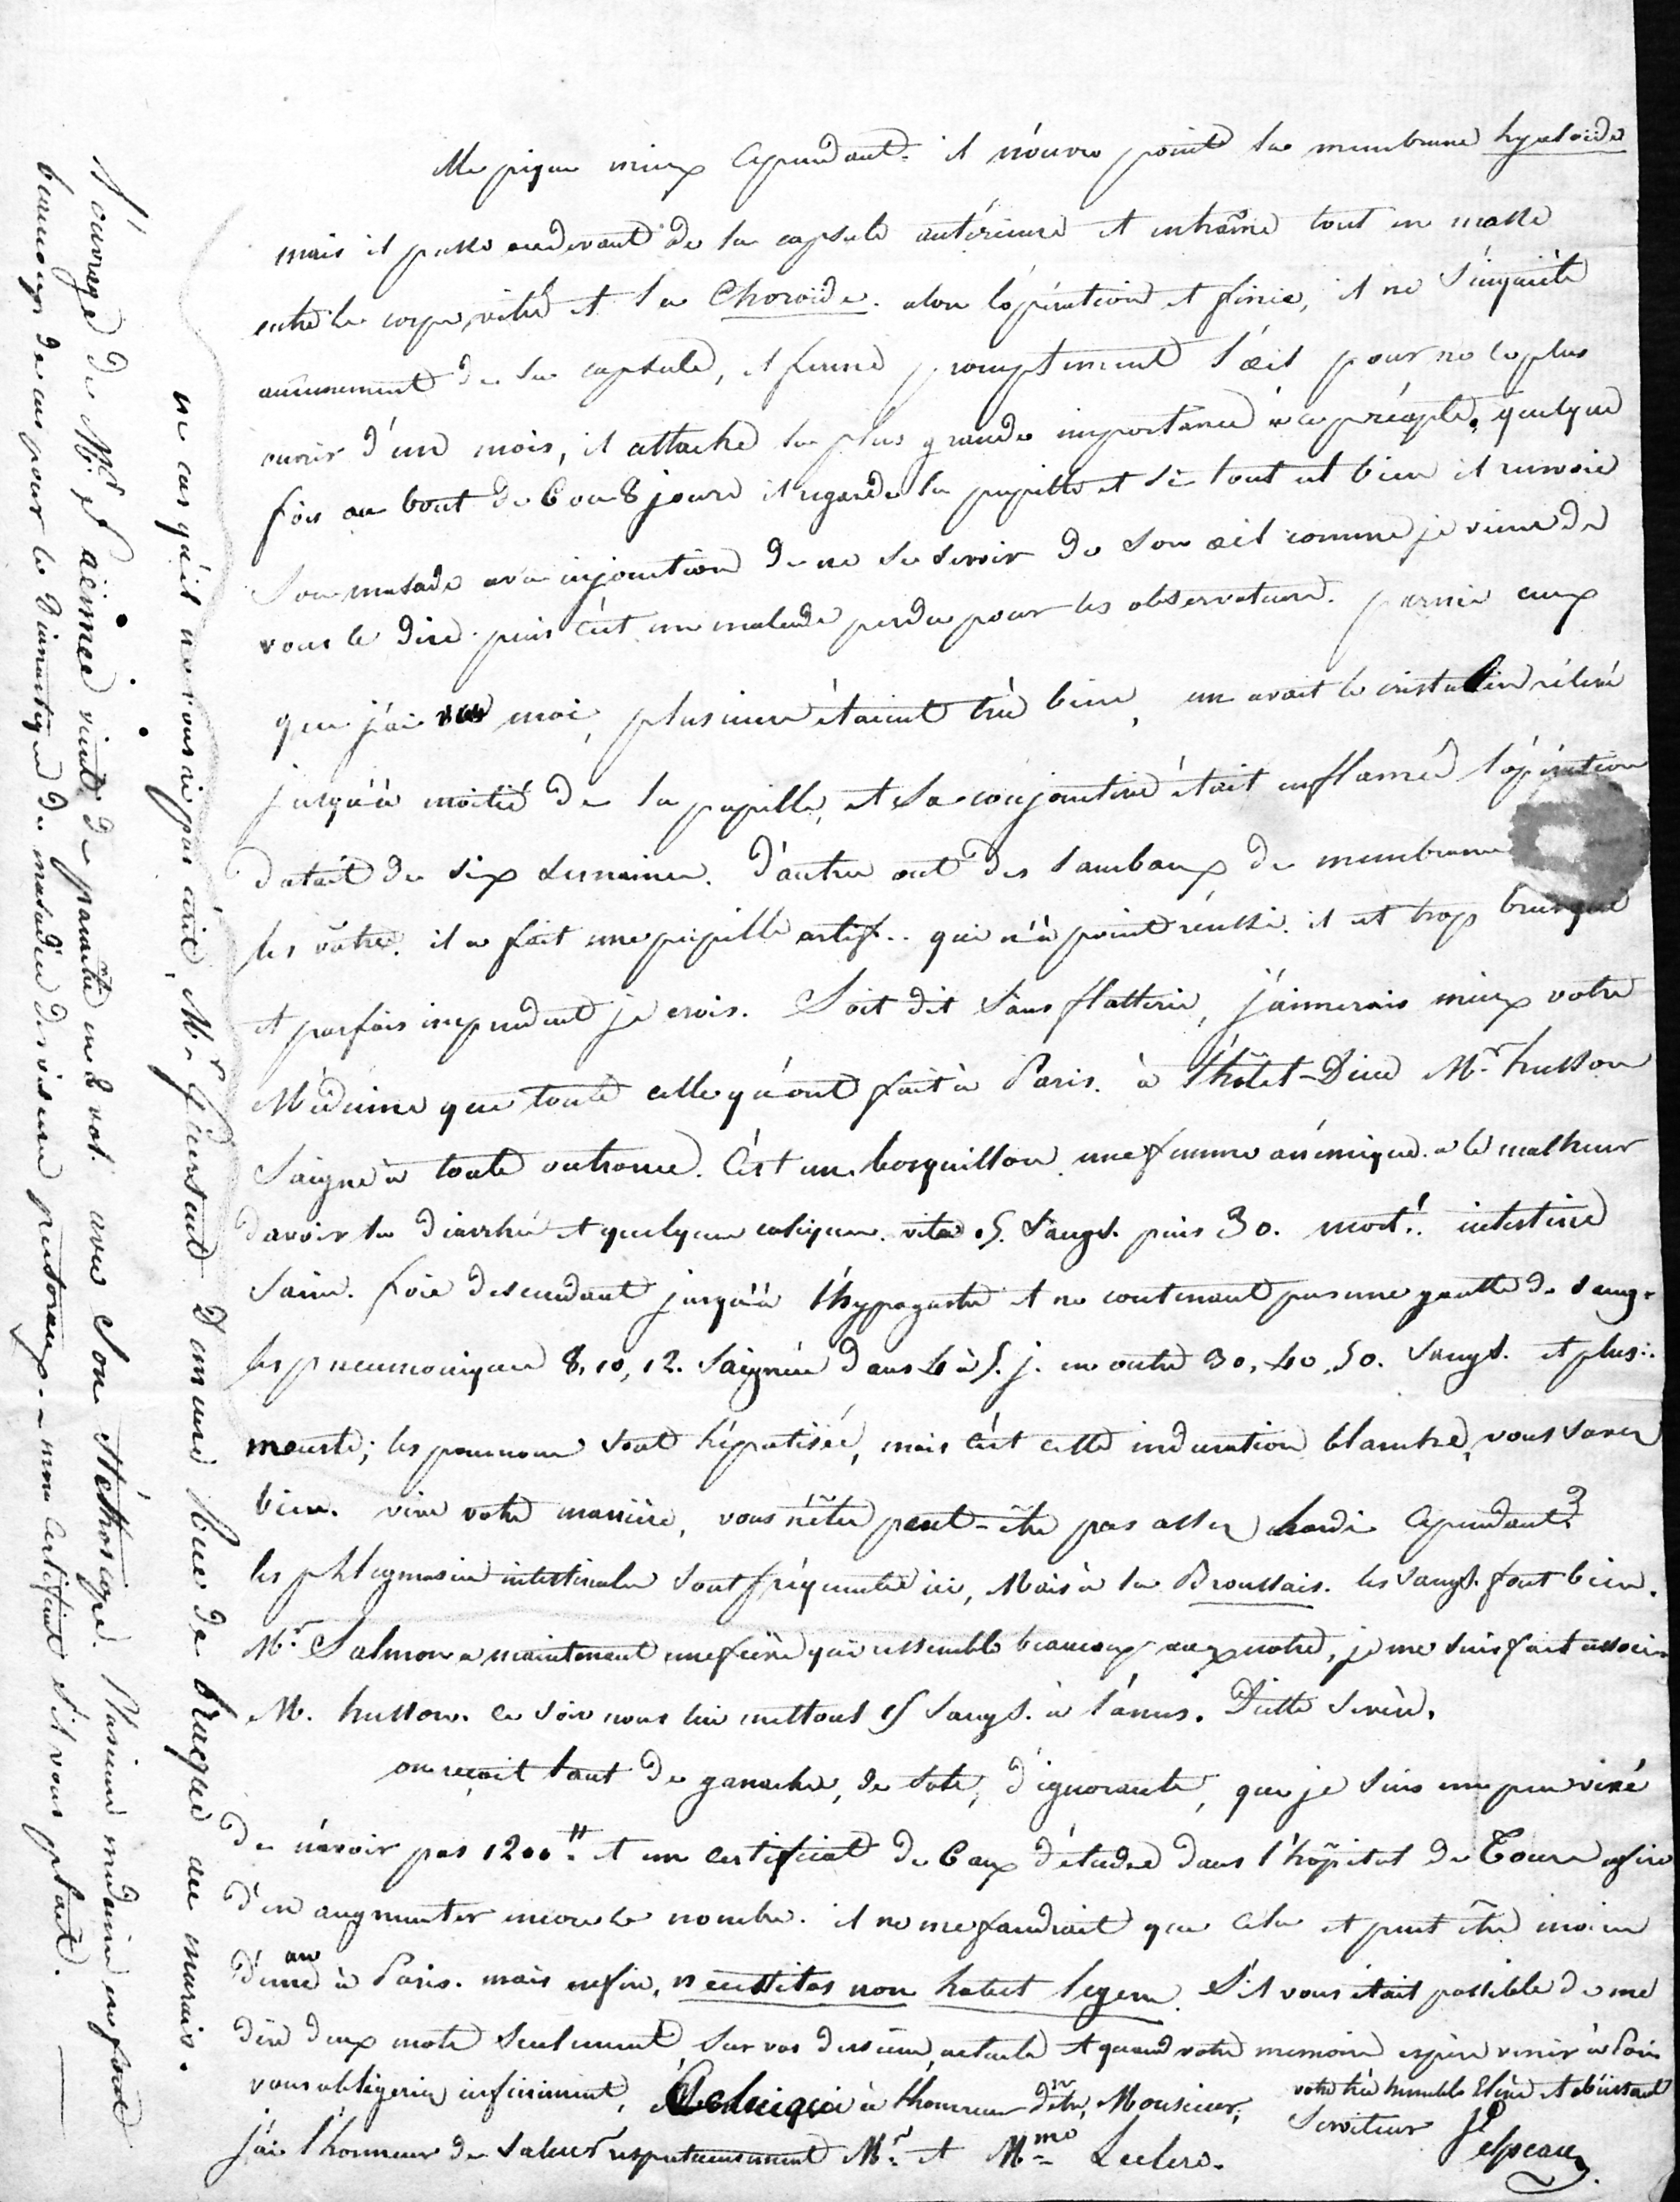 Me pique mieux cependant. il n'ouvre point la membrane hyaloïde
mais il passe audevant de la capsule antérieure et entraîne tout en masse
entre le corps vitré et la Choroïde. alors l'opération est finie, il ne s'inquiète
aucunement de la capsule, il ferme promptement l'œil pour ne le plus
ouvrir d'un mois, il attache la plus grande importance à ce précepte. quelque
fois au bout de 6 ou 8 jours il regarde la pupille et si tout est bien il renvoie
son malade avec injonction de ne se servir de son œil comme je viens de
vous le dire. puis c'est un malade perdu pour les observations. parmi ceux
que j'ai vus moi, plusieurs étaient très bien, un avait le cristallin relevé
jusqu'à moitié de la pupille, et la conjonctive était enflamée l'opération
datait de six semaines. d'autres ont des lambeaux de membrane
les vôtres. il a fait une pupille artif.. qui n'a point réussi. il est trop brusque
et parfois imprudent je crois. Soit dit sans flatterie, j'aimerais mieux votre
Médecine que toute celle qu'ont fait à Paris. à l'hôtel-Dieu Mr. husson
saigne à toute outrance. C'est un bosquillon. une femme anémique a le malheur
d'avoir la diarrhée et quelques coliques. vite 15. sangs. puis 30. mort!. intestins
sains. foie descendant jusqu'à l'hypogastre et ne contenant pas une goutte de sang.
les pneumoniques 8, 10, 12. saignées dans 4 à 5. j. en outre 30, 40, 50. sangs. et plus:.
meurte; les poumons sont hépatisés, mais c'est cette induration blanche, vous savez
bien. vive votre manière, vous n'êtes peut-être pas assez hardi cependant?
les phlegmasies intestinales sont fréquentes ici, Mais à la Broussais. les sangs. font bien.
Mr. Salmon a maintenant une fièvre qui ressemble beaucoup aux notres, je me suis fait associer
M. husson. ce soir nous lui mettons 15 sangs. à l'anus. Diette sévère.
on reçoit tant de ganaches, de sots, d'ignorants, que je suis un peu vexé
de n'avoir pas 1200 ₶. et un certificat de 6 ans d'études dans l'hôpital de Tours afin
d'en augmenter encore le nombre. il ne me faudrait que cela et peut être moins
d'une an à Paris. mais enfin, necessitas non habet legem. S'il vous était possible de me
dire deux mots seulement sur vos desseins actuels et quand votre memoire espère venir à Paris
vous obligeriez infiniment, Celui qui a l'honneur d'être, Monsieur, votre très humble Elève et obéissant
Serviteur Velpeau
j'ai l'honneur de saluer respectueusement Mr. et Mme Leclerc.
en cas qu'il ne vous ai pas écrit, Mr. fleersaut demeure Rue de braque au marais.
L'ouvrage de Mr. st aimee vient de paraître en 2 vol. avec son stéthoscope. Plusieurs médecins en font
beaucoup de cas pour le diagnostique des maladies des viscères pectoraux. - mon certificat s'il vous plait.